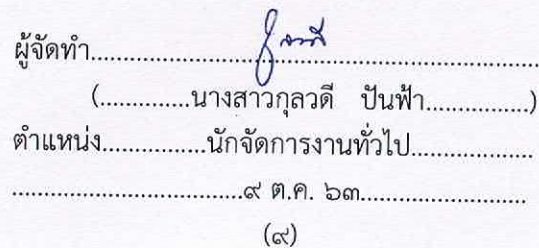 ผู้จัดทำ..............................................................
(.............นางสาวกุลวดี ปันฟ้า...............)
ตำแหน่ง...............นักจัดการงานทั่วไป.................
.................................๙ ต.ค. ๖๓........................
(๙)